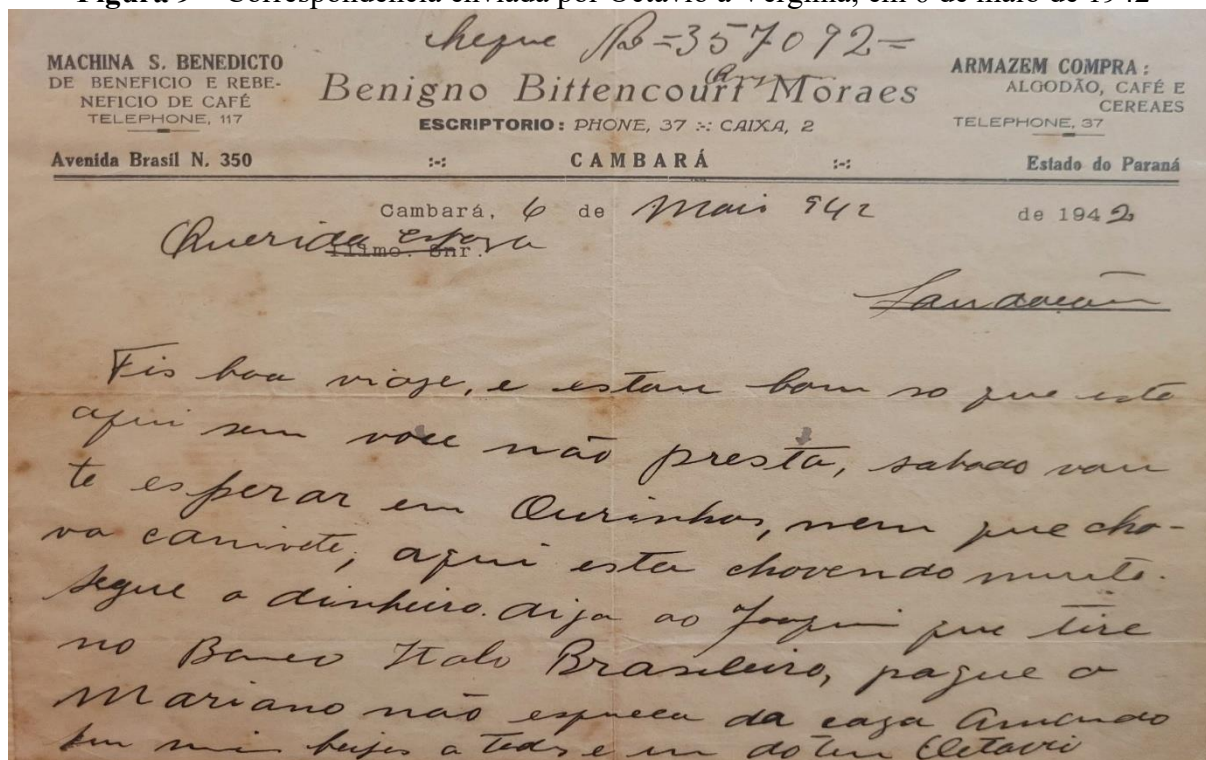 Figura 9 – Correspondência enviada por Octavio a Verginia, em 6 de maio de 1942
cheque Nº = 357092 =
MACHINA S. BENEDICTO
DE BENEFICIO E REBE-
NEFICIO DE CAFÉ
TELEPHONE, 117
Benigno Bittencourt Moraes
ESCRIPTORIO: PHONE, 37 :-: CAIXA, 2
ARMAZEM COMPRA:
ALGODÃO, CAFÉ E
CEREAES
TELEPHONE, 37
Avenida Brasil N. 350 :-: CAMBARÁ :-: Estado do Paraná
Cambará, 6 de Maio 942 de 1942
Querida esposa
Illmo. Snr.
Saudação
Fis boa viaje, e estou bom so que este
aqui sem voce não presta, sabado vou
te esperar em Ourinhos, nem que cho-
va canivete, aqui esta chovendo muito.
segue o dinheiro. diga ao Joaquim que tire
no Banco Italo Brasileiro, pague o
Mariano não esqueca da caza
beijos a todos e um do teu Octavio